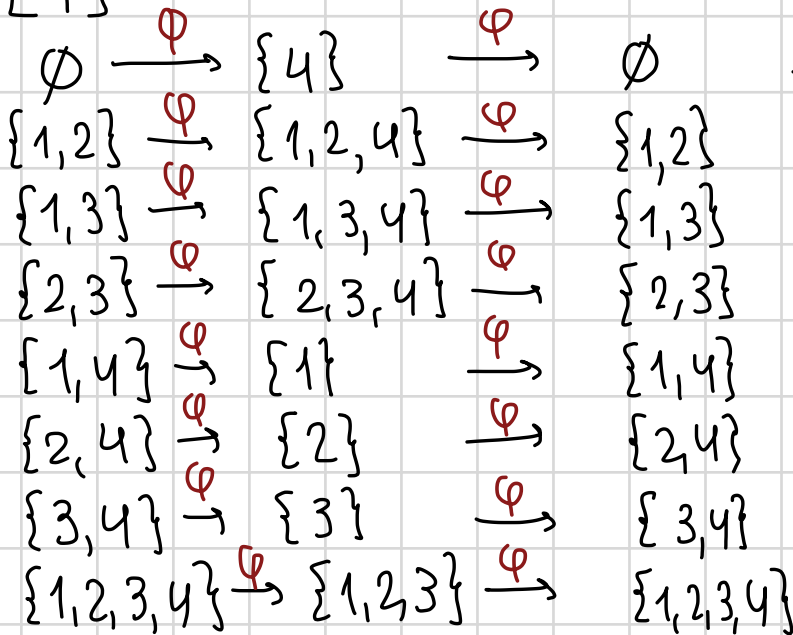 ∅ —φ→ {4} —φ→ ∅
{1,2} —φ→ {1,2,4} —φ→ {1,2}
{1,3} —φ→ {1,3,4} —φ→ {1,3}
{2,3} —φ→ {2,3,4} —φ→ {2,3}
{1,4} —φ→ {1} —φ→ {1,4}
{2,4} —φ→ {2} —φ→ {2,4}
{3,4} —φ→ {3} —φ→ {3,4}
{1,2,3,4} —φ→ {1,2,3} —φ→ {1,2,3,4}